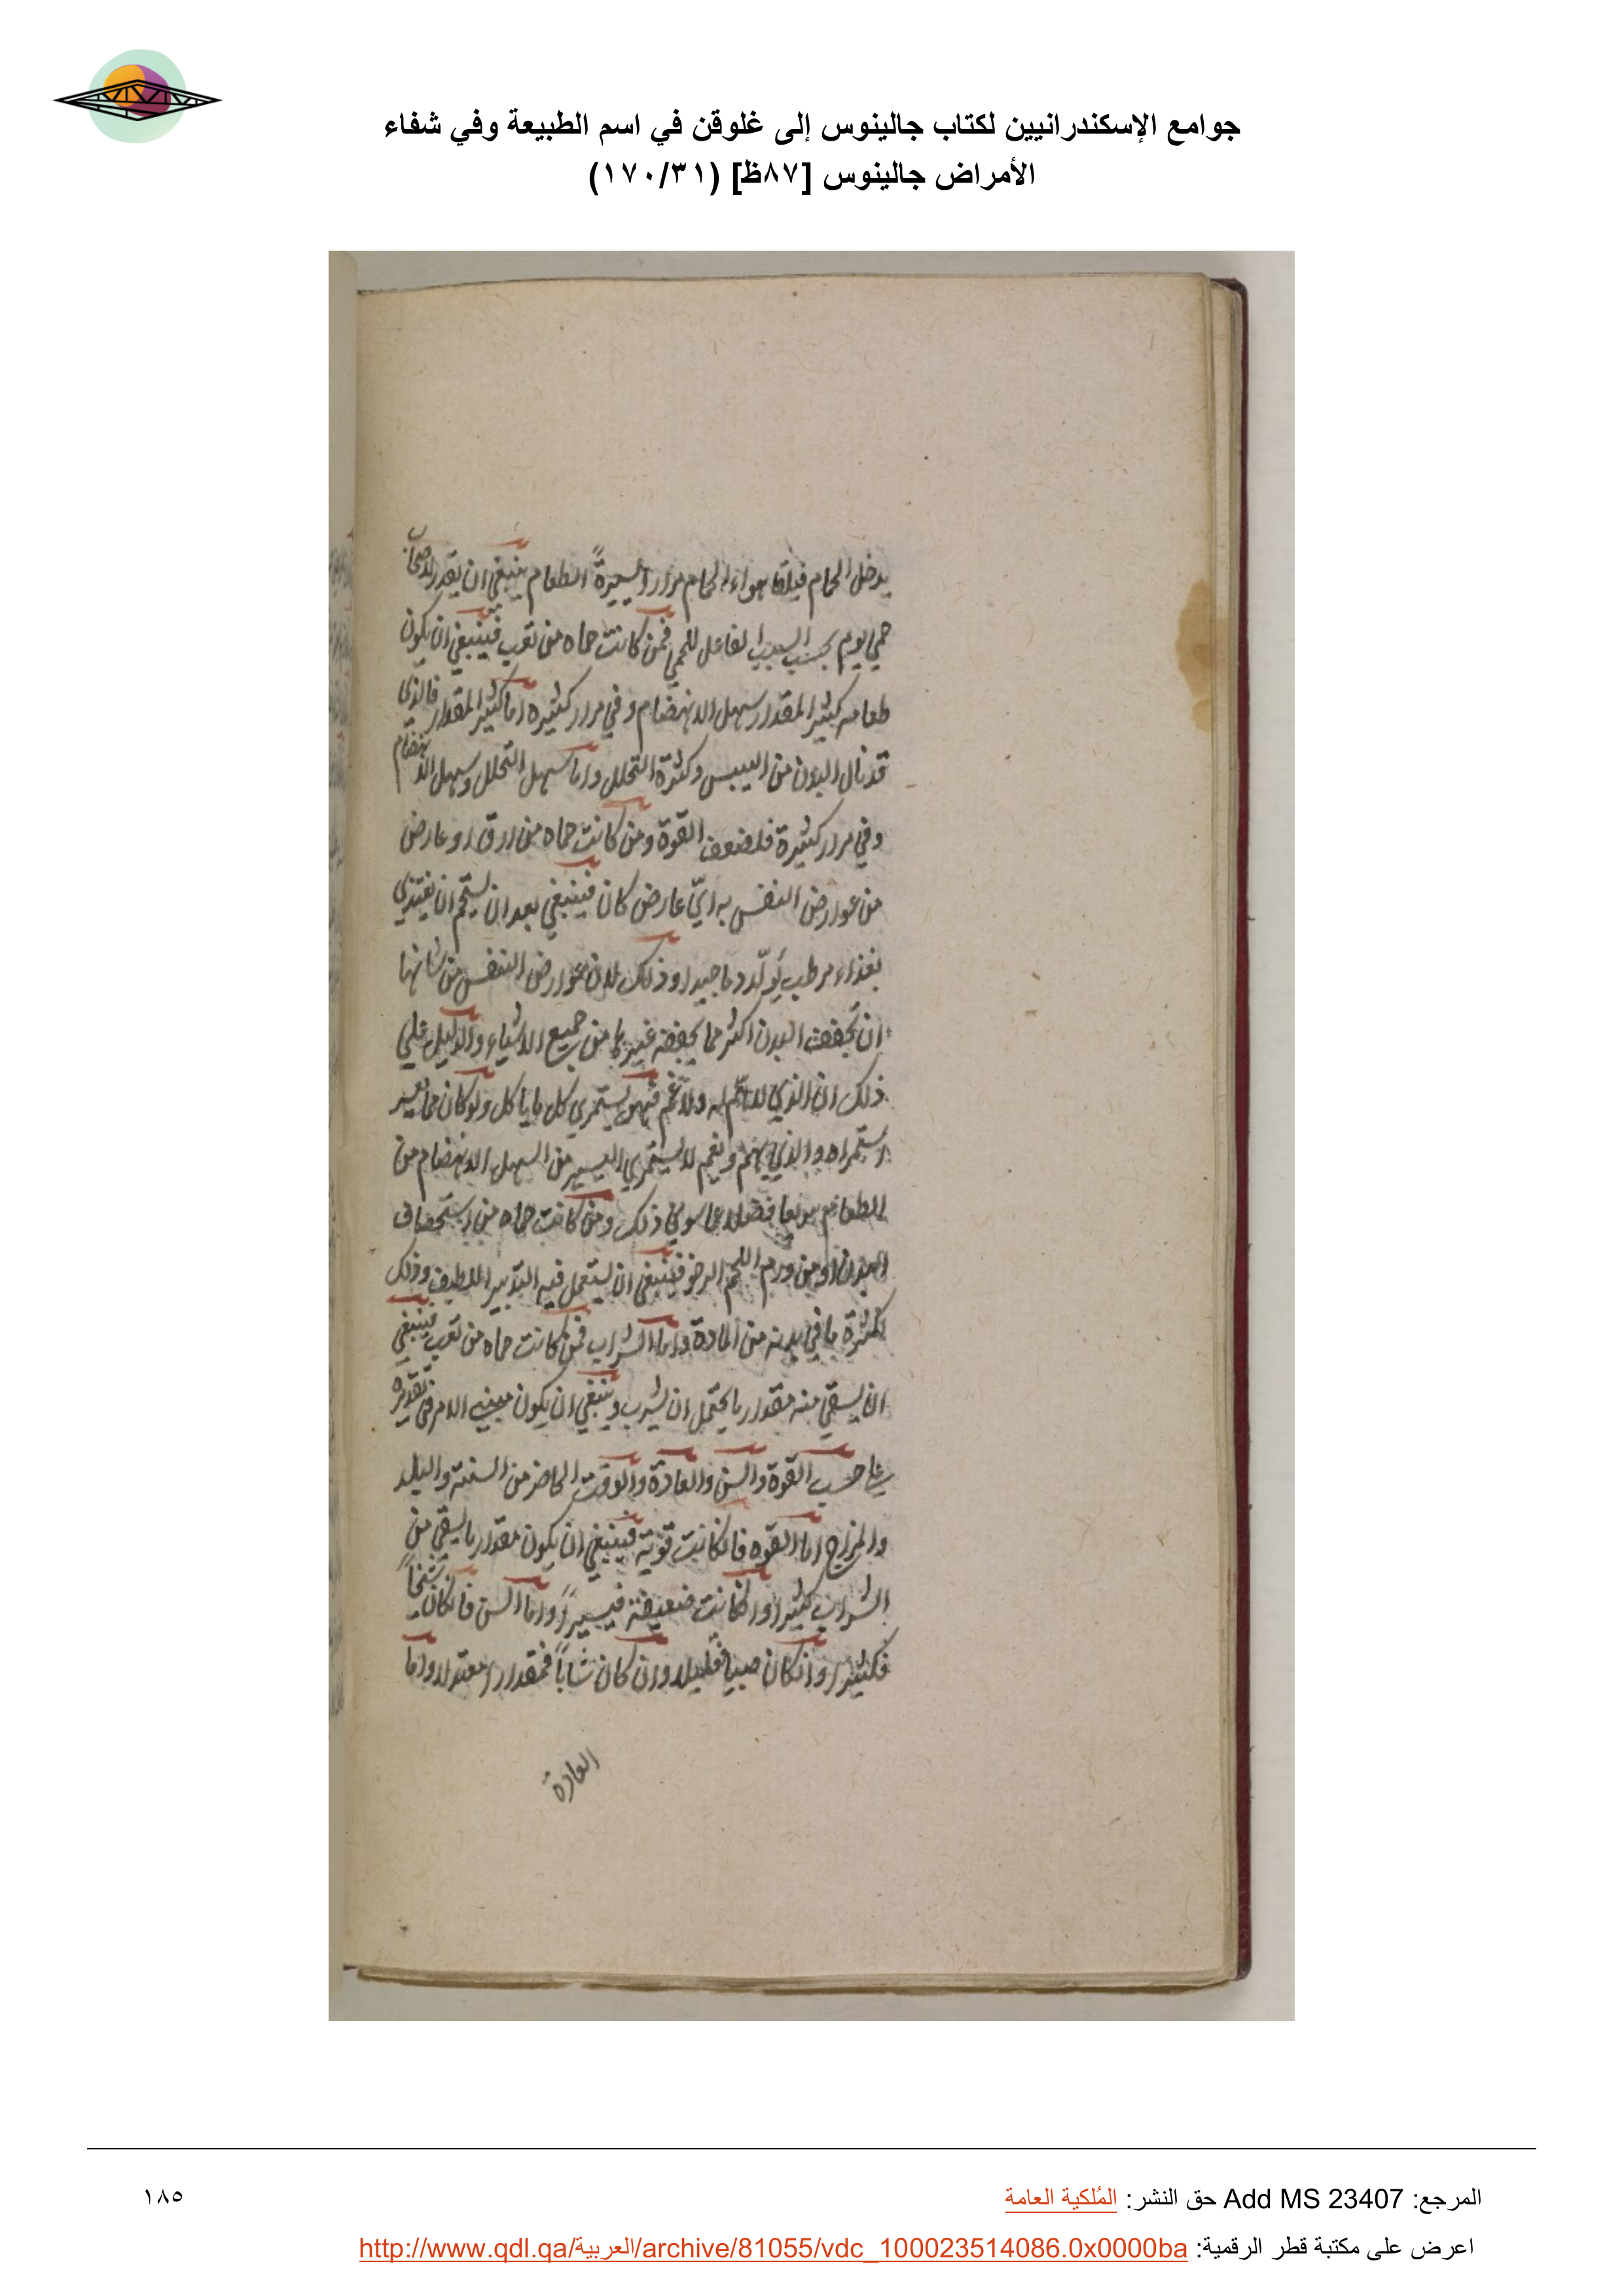 جوامع الإسكندرانيين لكتاب جالينوس إلى غلوقن في اسم الطبيعة وفي شفاء
الأمراض جالينوس [٨٧ظ] (١٧٠/٣١)
يدخل الحمام فيلقا هواء الحمام مرارا يسيرةً الطعام ينبغي ان يقدر لاصحاب
حمي يوم بحسب السبب الفاعل للحمي فمن كانت حماه من تعب فينبغي ان يكون
طعامه كثير المقدار سهل الانهضام وفي مرار كثيره اما كثير المقدار فالذي
قد نال البدن من اليبس وكثرة التحلل واما سهل التحلل وسهل الانهضام
وفي مرار كثيرة فلضعف القوة ومن كانت حماه من ارق او عارض
من عوارض النفس به ايّ عارض كان فينبغي بعد ان يستحم ان يغتذي
بغذاء مرطب يُولّد دما جيدا وذلك لان عوارض النفس من شانها
ان تجفف البدن اكثر مما يجففه غيرها من جميع الاشياء والدليل علي
ذلك ان الذي لا همّ له ولا غم فهو يستمري كل ما ياكل ولو كان مما يعسر
استمراه والذي يهتم ويغم لا يستمري اليسير من السهل الانهضام من
الطعام فضلا عما سوي ذلك ومن كانت حماه من استحصاف
البدن او من ورم اللحم الرخو فينبغي ان يستعمل فيه التدبير اللطيف وذلك
لكثرة ما في بدنه من المادة واما الشراب فمن كانت حماه من تعب فينبغي
ان يسقي منه مقدار ما يحتمل ان يشرب وينبغي ان يكون مبني الامر في تقديره
علي حسب القوة والسن والعادة والوقت الحاضر من السنة والبلد
والمزاج اما القوه فان كانت قوية فينبغي ان يكون مقدار ما يسقي من
الشراب كثيرا وان كانت ضعيفة فيسيراً واما السن فان كان شيخاً
فكثيرا وان كان صبيا فقليلا وان كان شاباً فمقدارا معتدلا واما
العادة
المرجع: Add MS 23407 حق النشر: المُلكية العامة
١٨٥
اعرض على مكتبة قطر الرقمية: http://www.qdl.qa/العربية/archive/81055/vdc_100023514086.0x0000ba